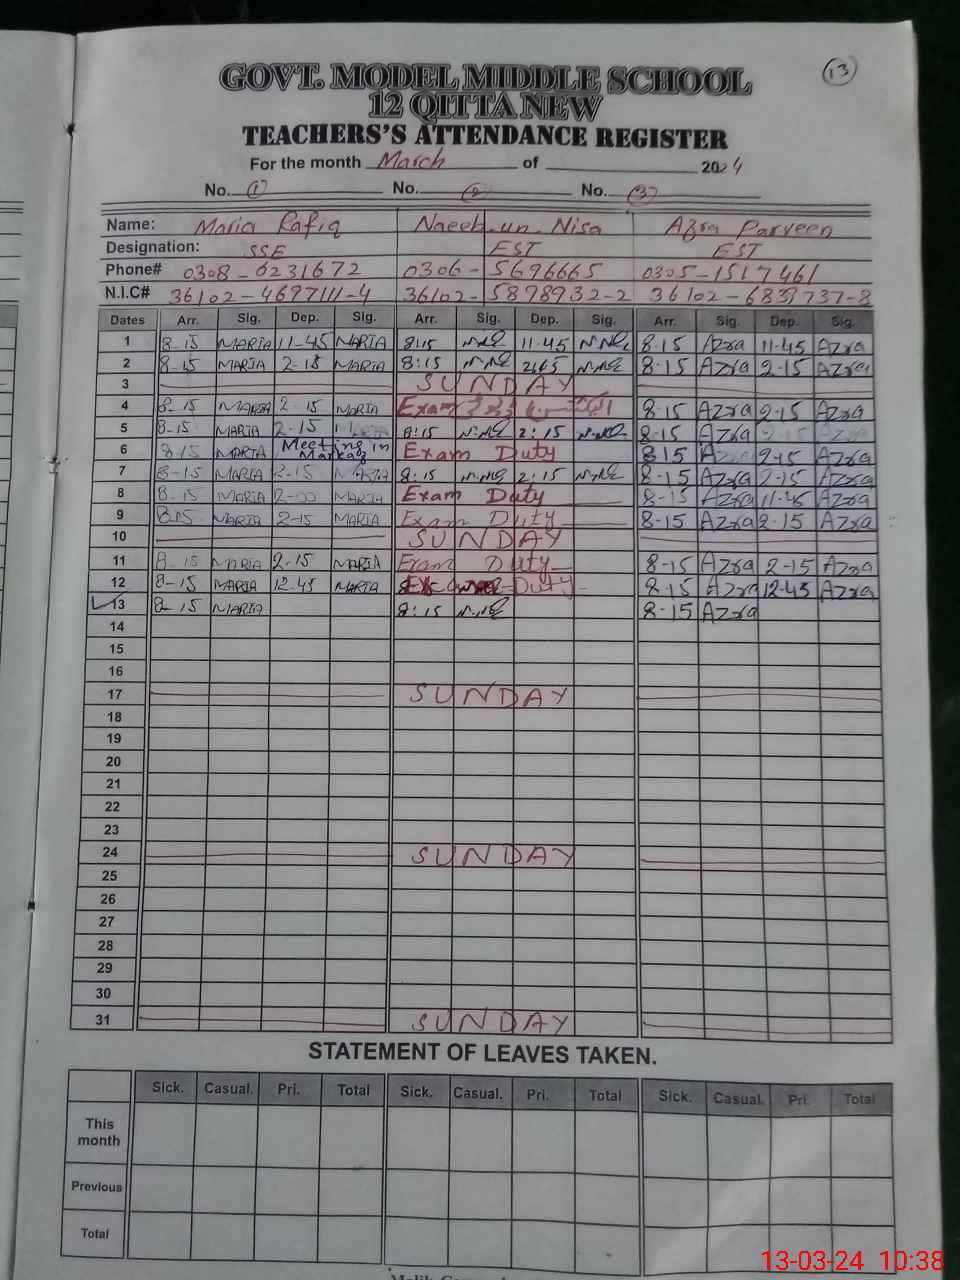 13
GOVT. MODEL MIDDLE SCHOOL
12 QITTA NEW
TEACHERS'S ATTENDANCE REGISTER
For the month March of 2024
No. (1) No. (2) No. (3)
Name: Maria Rafiq Naeeb un Nisa Azra Parveen
Designation: SSE EST EST
Phone# 0308-6231672 0306-5696665 0305-1517461
N.I.C# 36102-4697111-4 36102-5898932-2 36102-6839737-8
Dates Arr. Sig. Dep. Sig. Arr. Sig. Dep. Sig. Arr. Sig. Dep. Sig.
1 8-15 MARIA 11-45 MARIA 8:15 11-45 8-15 Azra 11-45 Azra
2 8-15 MARIA 2-15 MARIA 8:15 8-15 Azra 2-15 Azra
3 SUNDAY
4 8-15 MARIA 2-15 MARIA Exam 8-15 AZra 2-15 AZra
5 8-15 MARIA 2-15 8:15 2:15 8-15 AZra 2-15 AZra
6 8-15 MARIA Meeting in Markaz Exam Duty 8-15 2-15 AZra
7 8-15 MARIA 2-15 MARIA 8:15 2:15 8-15 AZra 2-15 AZra
8 8-15 MARIA 12-00 MARIA Exam Duty 8-15 AZra 11-45 AZra
9 8-15 MARIA 2-15 MARIA Exam Duty 8-15 AZra 2-15 AZra
10 SUNDAY
11 8-15 MARIA 2-15 MARIA Exam Duty 8-15 AZra 2-15 AZra
12 8-15 MARIA 12-45 MARIA Duty 8-15 AZra 12-45 AZra
13 8-15 MARIA 8:15 8-15 AZra
14
15
16
17 SUNDAY
18
19
20
21
22
23
24 SUNDAY
25
26
27
28
29
30
31 SUNDAY
STATEMENT OF LEAVES TAKEN.
Sick. Casual. Pri. Total Sick. Casual. Pri. Total Sick. Casual. Pri. Total
This
month
Previous
Total
13-03-24 10:38